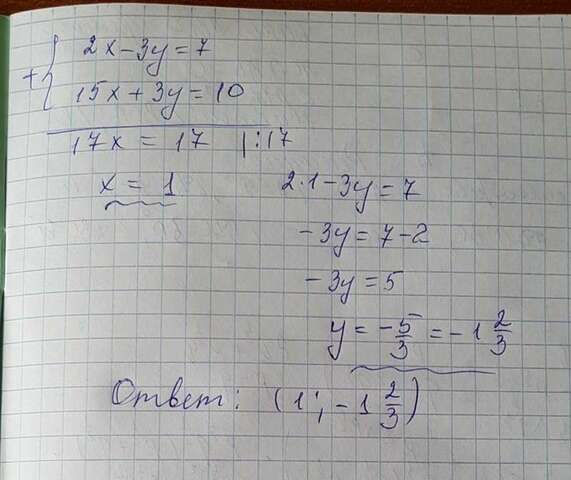 +{ 2x-3y=7
15x+3y=10
17x = 17 |:17
x = 1
2·1-3y=7
-3y=7-2
-3y=5
y= -5/3 = -1 2/3
Ответ: (1; -1 2/3)